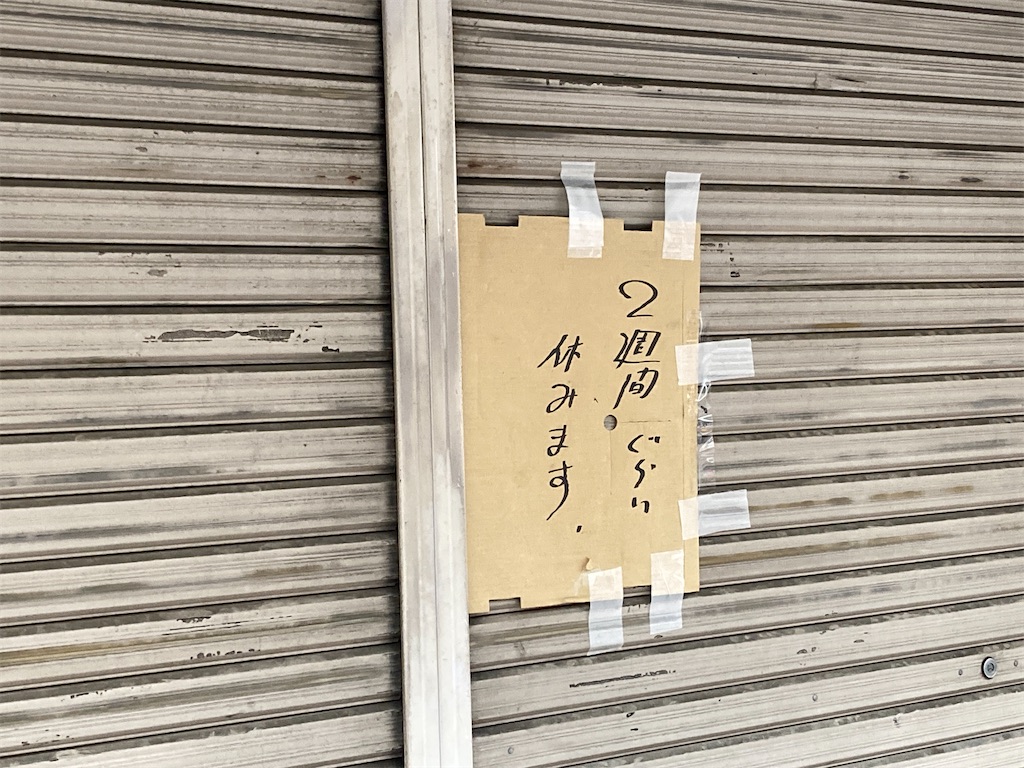 2週間ぐらい
休みます.